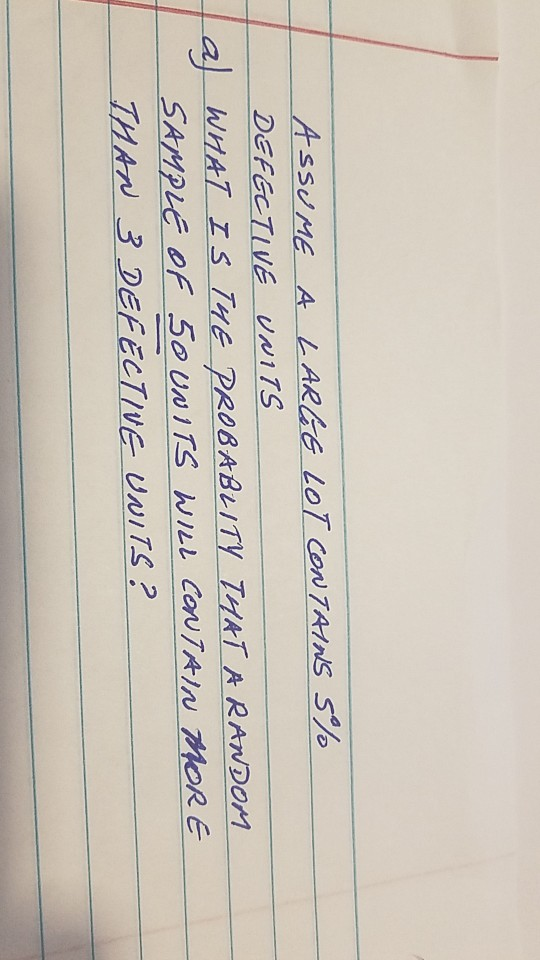 ASSUME A LARGE LOT CONTAINS 5%
DEFECTIVE UNITS
a) WHAT IS THE PROBABLITY THAT A RANDOM
SAMPLE OF 50 UNITS WILL CONTAIN MORE
THAN 3 DEFECTIVE UNITS?